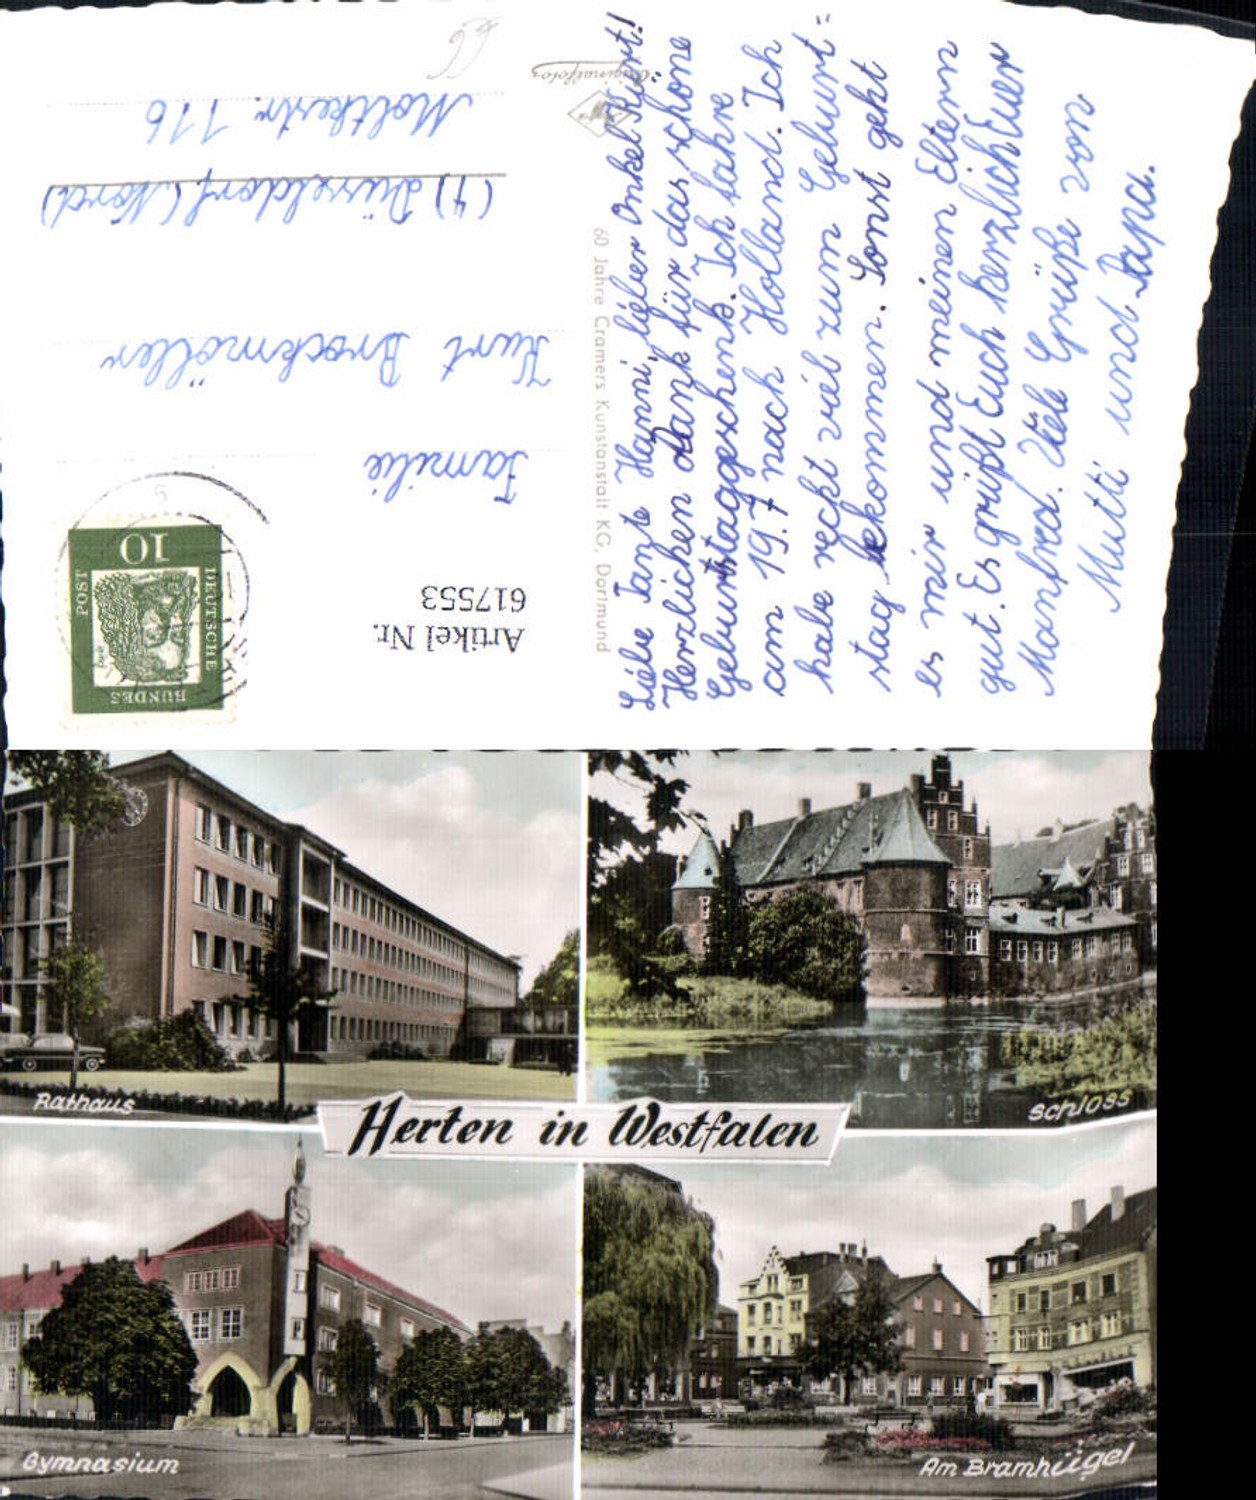 Liebe Tante Hanni, lieber Onkel Kurt!
Herzlichen Dank für das schöne
Geburtstaggeschenk. Ich fahre
am 19.7 nach Holland. Ich
habe recht viel zum Geburt=
stag bekommen. Sonst geht
es mir und meinen Eltern
gut. Es grüßt Euch herzlich Euer
Manfred. Viele Grüße von
Mutti und Papa.
60 Jahre Cramers Kunstanstalt KG, Dortmund
Originalfotos
Artikel Nr.
617553
DEUTSCHE
BUNDES
POST
10
Familie
Kurt Brockmöller
(4) Düsseldorf (Nord)
Moltkestr. 116
Rathaus
Schloss
Herten in Westfalen
Gymnasium
Am Bramhügel